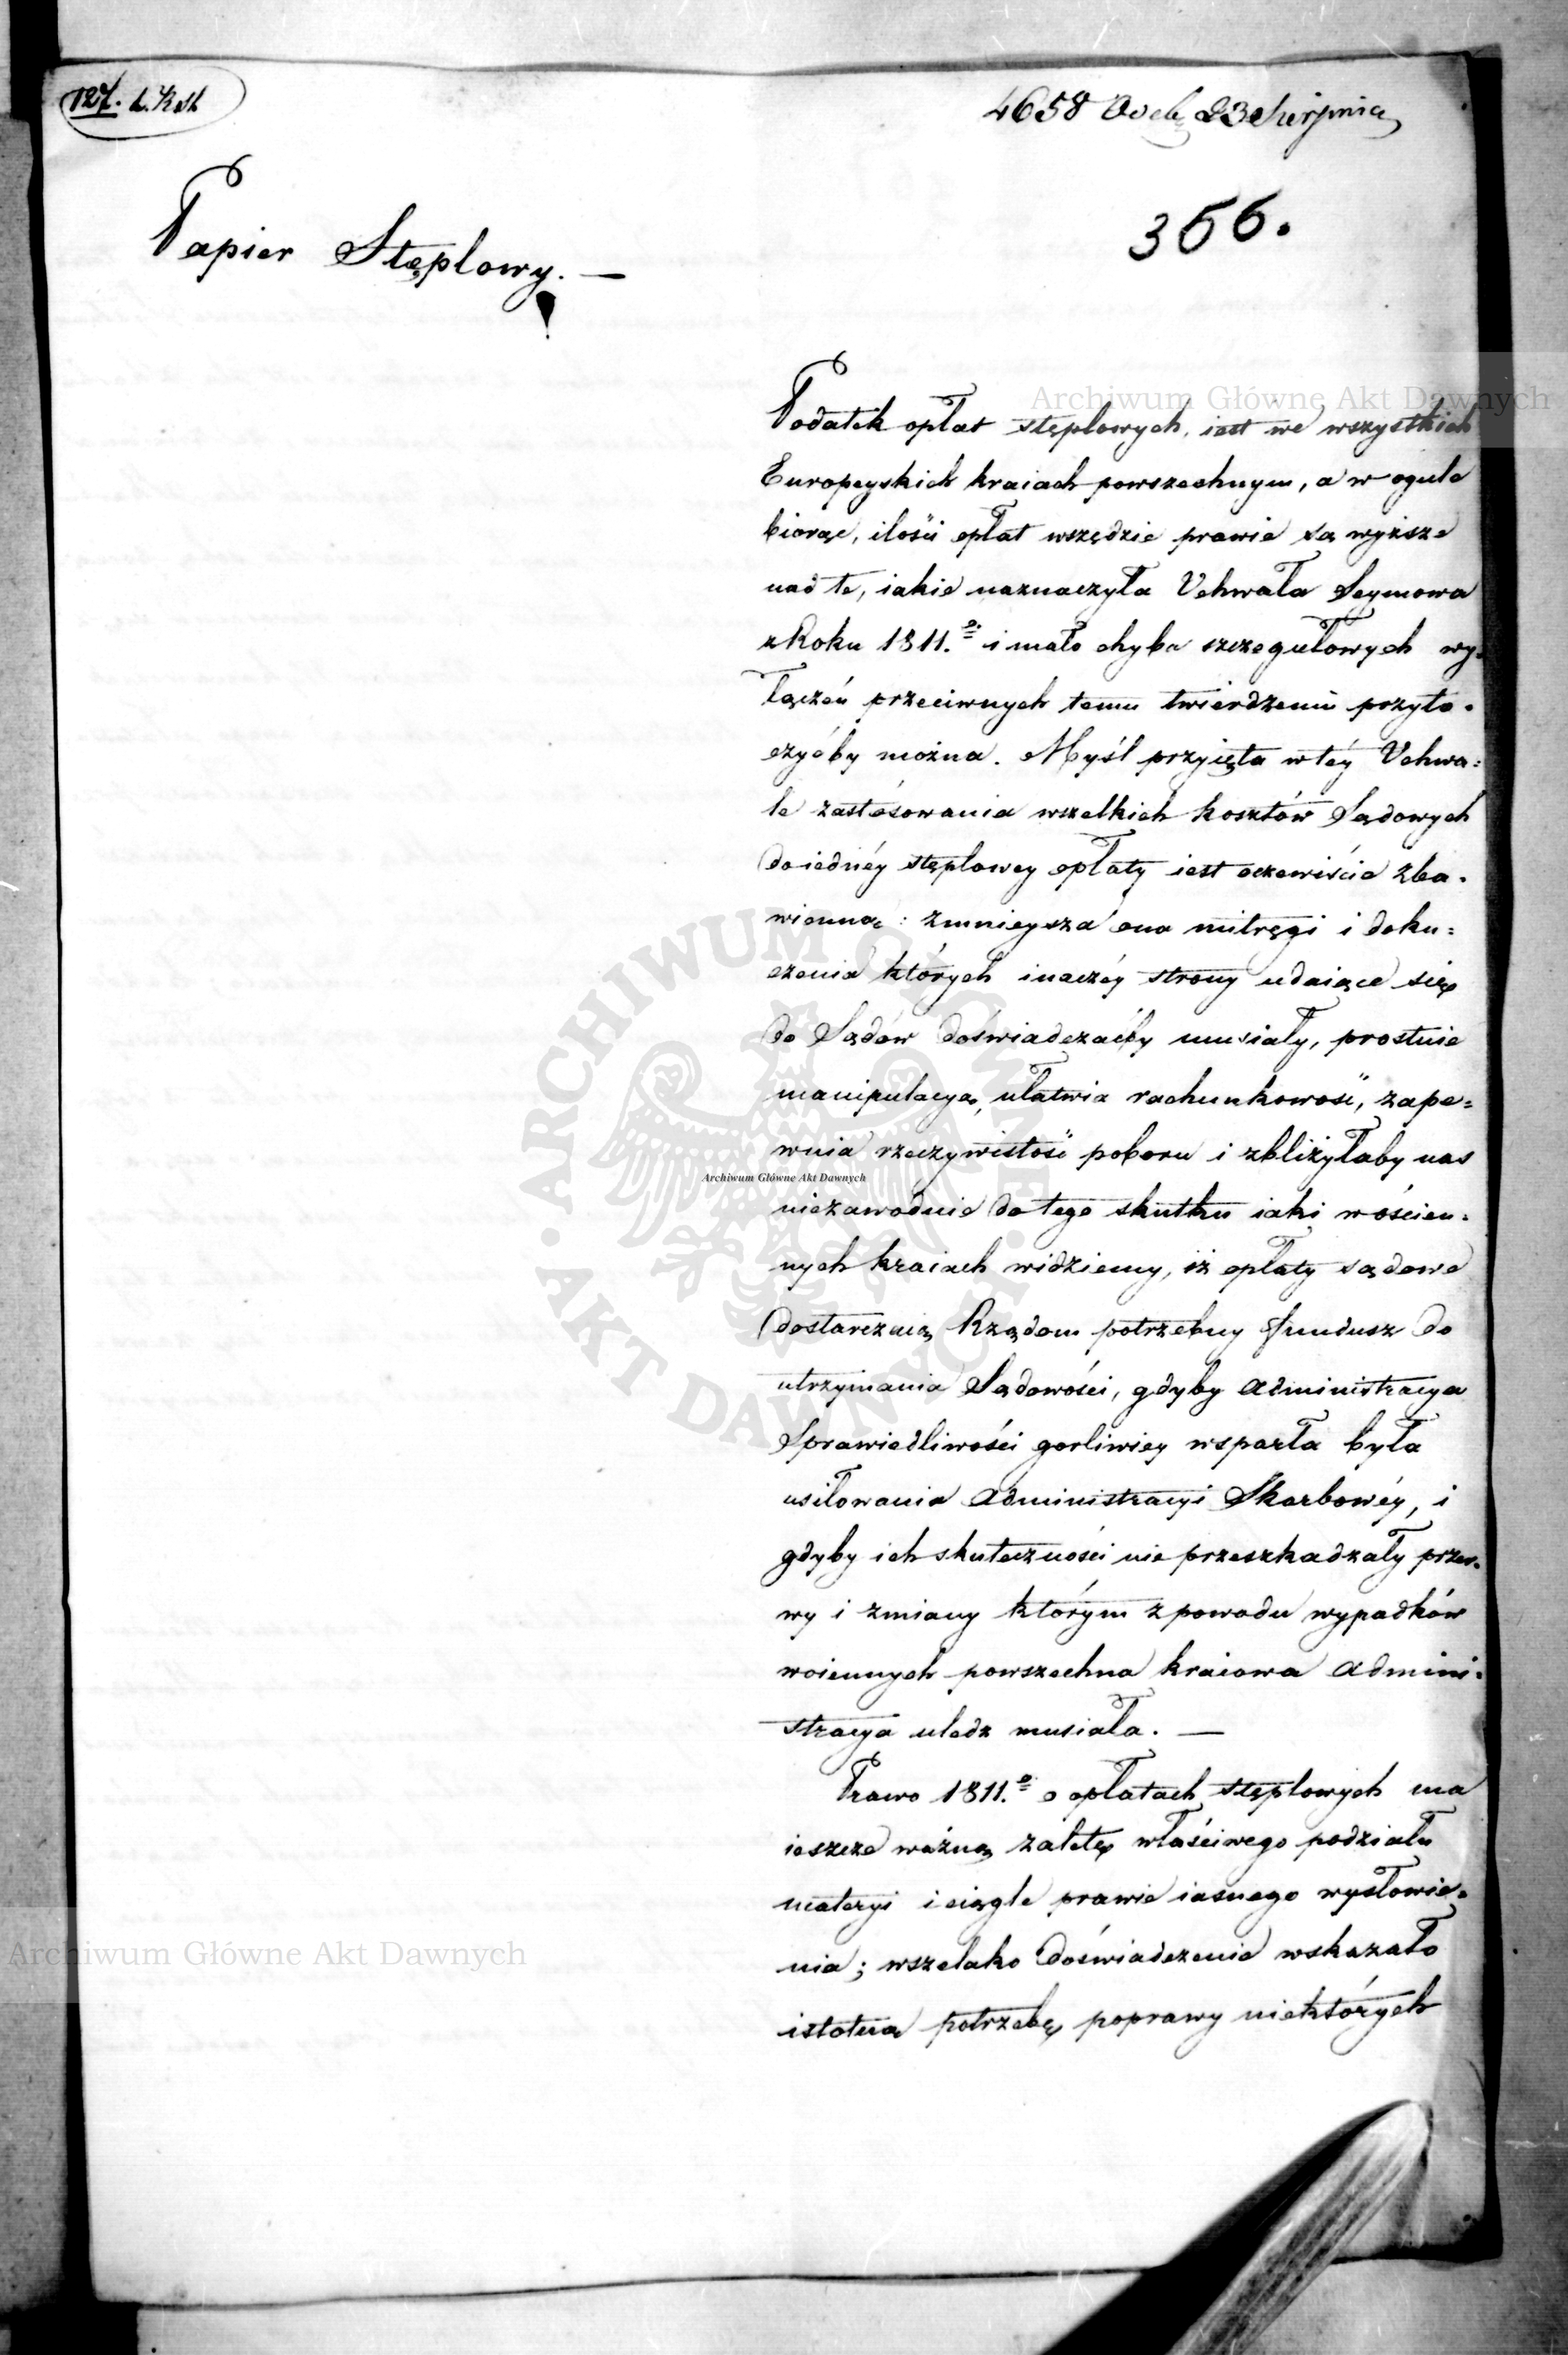 127. L. R st.
4658 Odeb. 23 Sierpnia
Papier Stęplowy. —
366.
Podatek opłat stęplowych, iest we wszystkich
Europeyskich kraiach powszechnym, a w ogule
biorąc, ilości opłat wszędzie prawie są wyższe
nad te, iakie naznaczyła Uchwała Seymowa
z Roku 1811.º i mało chyba szczegułowych wy-
łączeń przeciwnych temu twierdzeniu przyto-
czyćby można. Myśl przyięta w téy Uchwa=
le zastósowania wszelkich kosztów Sądowych
do iednéy stęplowey opłaty iest oczewiście zba-
wienną: zmnieysza ona mitręgi i doku=
czenia których inaczéy strony udaiące się
do Sądów doświadczaćby musiały, prostuie
manipulacyą, ułatwia rachunkowość, zape=
wnia rzeczywistość poboru i zbliżyłaby nas
niezawodnie do tego skutku iaki w ościen-
nych kraiach widziemy, iż opłaty sądowe
dostarczaią Rządom potrzebny fundusz do
utrzymania Sądowości, gdyby Administracya
Sprawiedliwości gorliwiey wsparła była
usiłowania Administracyi Skarbowéy, i
gdyby ich skuteczności nie przeszkadzały przer-
wy i zmiany którym z powodu wypadków
woiennych powszechna kraiowa Admini-
stracya uledz musiała. —
Prawo 1811.º o opłatach stęplowych ma
ieszcze ważną zaletę właściwego podziału
materyi i ciągle prawie iasnego wysłowie-
nia; wszelako doświadczenie wskazało
istotną potrzebę poprawy niektórych
Archiwum Główne Akt Dawnych
Archiwum Główne Akt Dawnych
Archiwum Główne Akt Dawnych
ARCHIWUM GŁÓWNE · AKT DAWNYCH ·